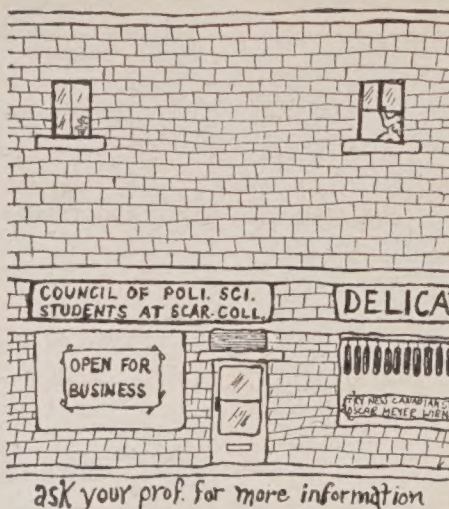 COUNCIL OF POLI. SCI.
STUDENTS AT SCAR-COLL.
DELICA
OPEN FOR
BUSINESS
TRY NEW CANADIAN
OSCAR MEYER WIEN
ask your prof. for more information